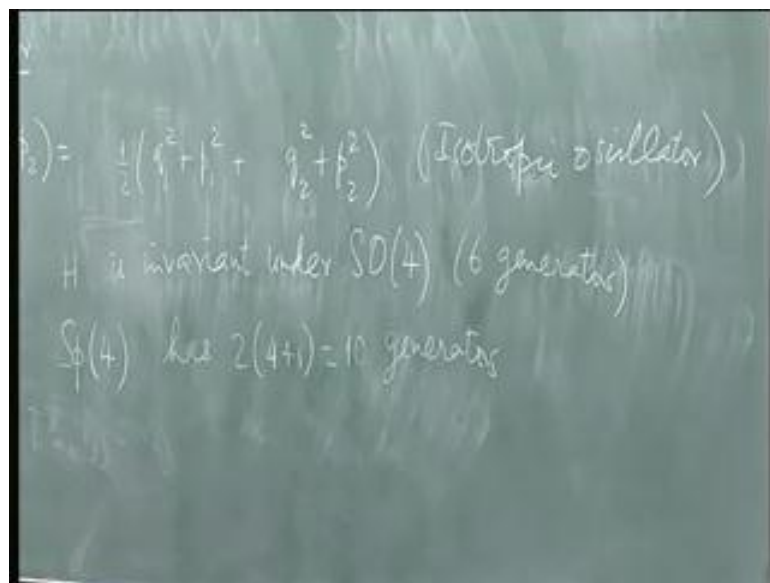 p₂) = ½(q₁² + p₁² + q₂² + p₂²) (Isotropic oscillator)
H is invariant under SO(4) (6 generators)
Sp(4) has 2(4+1) = 10 generators